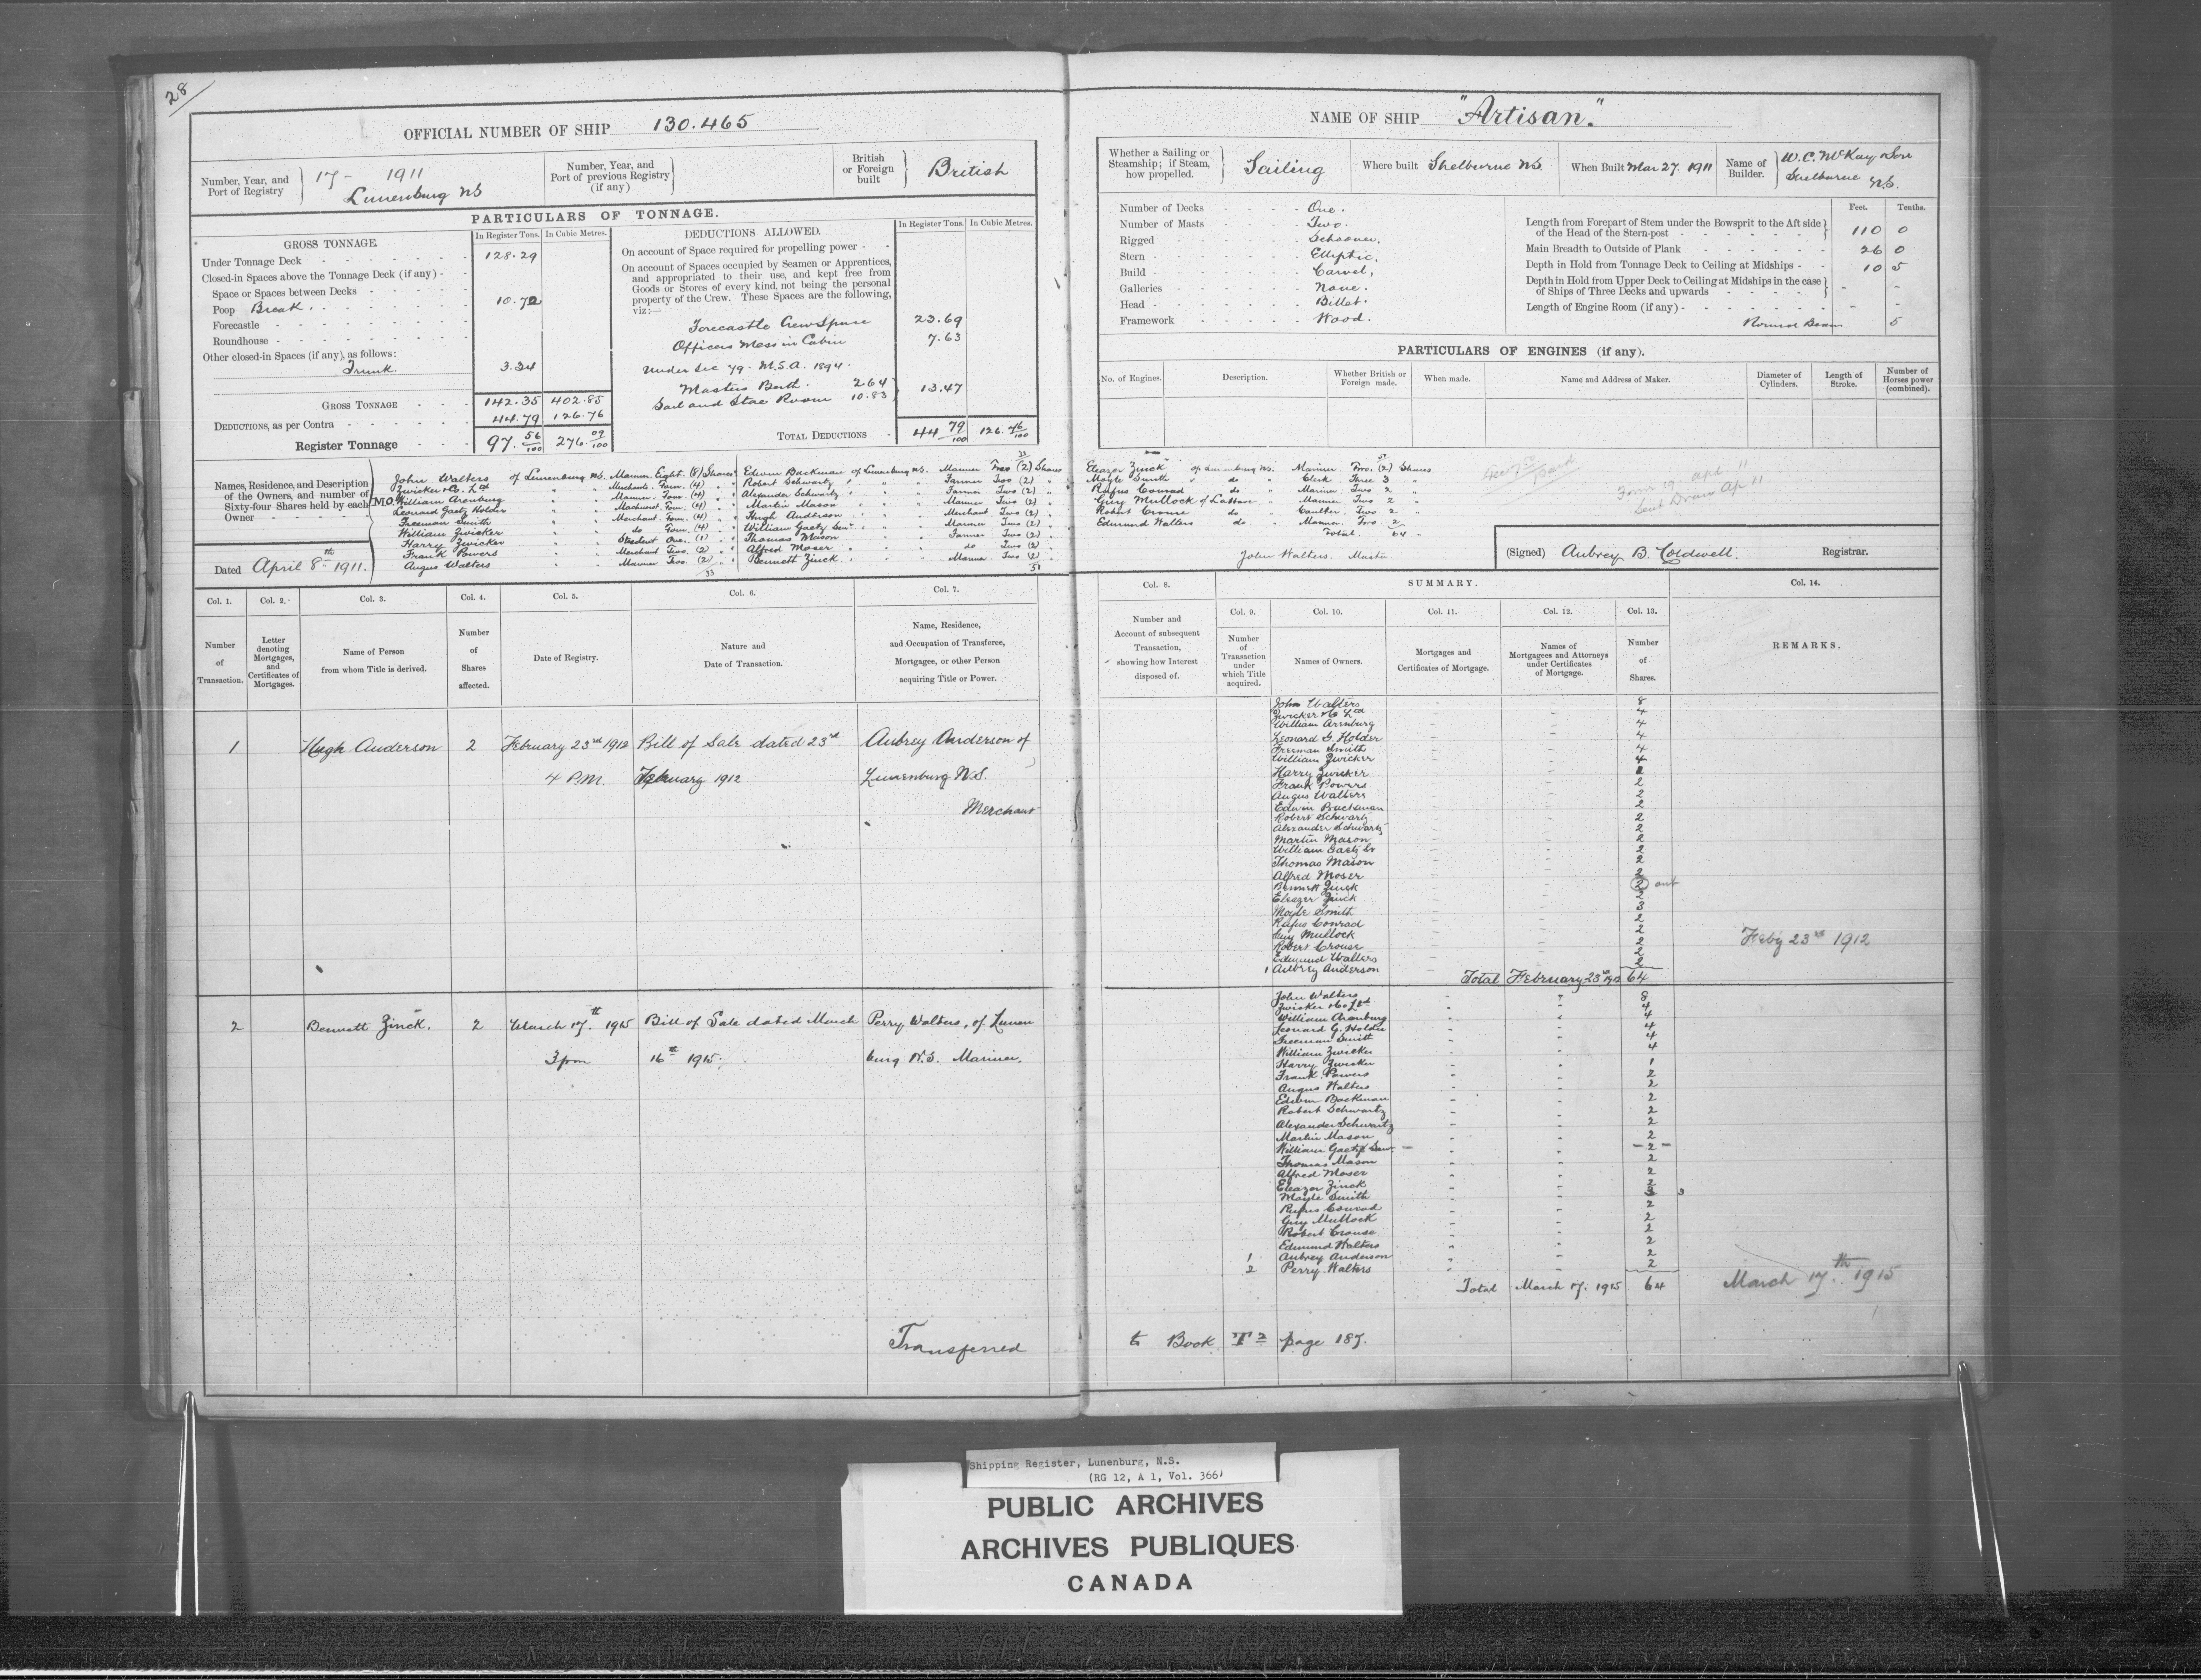 28
OFFICIAL NUMBER OF SHIP 130.465
Number, Year, and Port of Registry
17 - 1911
Lunenburg NS
Number, Year, and Port of previous Registry (if any)
British or Foreign built
British
PARTICULARS OF TONNAGE.
GROSS TONNAGE.
In Register Tons. In Cubic Metres.
Under Tonnage Deck 128.29
Closed-in Spaces above the Tonnage Deck (if any) -
Space or Spaces between Decks
Poop Break. 10.72
Forecastle
Roundhouse
Other closed-in Spaces (if any), as follows:
Trunk. 3.34
GROSS TONNAGE 142.35 402.85
DEDUCTIONS, as per Contra 44.79 126.76
Register Tonnage 97. 56/100 276. 09/100
DEDUCTIONS ALLOWED.
In Register Tons. In Cubic Metres.
On account of Space required for propelling power - -
On account of Spaces occupied by Seamen or Apprentices,
and appropriated to their use, and kept free from
Goods or Stores of every kind, not being the personal
property of the Crew. These Spaces are the following,
viz:—
Forecastle Crew Space 23.69
Officers Mess in Cabin 7.63
Under Sec 79. M.S.A. 1894.
Masters Berth. 2.64
Sail and Store Room 10.83 13.47
TOTAL DEDUCTIONS - 44 79/100 126. 76/100
Names, Residence, and Description
of the Owners, and number of
Sixty-four Shares held by each
Owner
MO.
Dated April 8th 1911.
John Walters of Lunenburg NS. Mariner. Eight. (8) Shares
Zwicker & Co. Ltd " " Merchants. Four. (4) "
William Arenburg " " Mariner. Four. (4) "
Leonard Gaetz Holder " " Machinist. Four. (4) "
Freeman Smith " " Merchant. Four. (4) "
William Zwicker " " do Four. (4) "
Harry Zwicker " " Student One. (1) "
Frank Powers " " Merchant Two. (2) "
Angus Walters " " Mariner Two. (2) "
33
33
Edwin Backman of Lunenburg NS. Mariner Two (2) Shares
Robert Schwartz " " Farmer Two (2) "
Alexander Schwartz " " Farmer Two (2) "
Martin Mason " " Mariner Two (2) "
Hugh Anderson " " Merchant Two (2) "
William Gaetz Senr " " Mariner Two (2) "
Thomas Mason " " Farmer Two (2) "
Alfred Moser " " do Two (2) "
Bennett Zinck " " Mariner Two (2) "
51
Col. 1. Col. 2. Col. 3. Col. 4. Col. 5. Col. 6. Col. 7.
Number of Transaction.
Letter denoting Mortgages, and Certificates of Mortgages.
Name of Person from whom Title is derived.
Number of Shares affected.
Date of Registry.
Nature and Date of Transaction.
Name, Residence, and Occupation of Transferee, Mortgagee, or other Person acquiring Title or Power.
1 Hugh Anderson 2 February 23rd 1912 Bill of Sale dated 23rd Aubrey Anderson of
4 P.M. February 1912 Lunenburg N.S.
Merchant
2 Bennett Zinck. 2 March 17th 1915 Bill of Sale dated March Perry Walters, of Lunen
3 pm 16th 1915. burg N.S. Mariner.
Transferred
NAME OF SHIP "Artisan."
Whether a Sailing or Steamship; if Steam, how propelled.
Sailing
Where built Shelburne NS.
When Built Mar 27. 1911
Name of Builder.
W.C. McKay & Son
Shelburne N.S.
Number of Decks One.
Number of Masts Two.
Rigged Schooner.
Stern Elliptic.
Build Carvel,
Galleries None.
Head Billet.
Framework Wood.
Feet. Tenths.
Length from Forepart of Stem under the Bowsprit to the Aft side
of the Head of the Stern-post 110 0
Main Breadth to Outside of Plank 26 0
Depth in Hold from Tonnage Deck to Ceiling at Midships - - 10 5
Depth in Hold from Upper Deck to Ceiling at Midships in the case
of Ships of Three Decks and upwards - -
Length of Engine Room (if any) - -
Round Beam 5
PARTICULARS OF ENGINES (if any).
No. of Engines. Description. Whether British or Foreign made. When made. Name and Address of Maker. Diameter of Cylinders. Length of Stroke. Number of Horses power (combined).
51
Eleazer Zinck of Lunenburg NS. Mariner. Two. (2) Shares
Moyle Smith " do " Clerk Three 3 "
Rufus Conrad do " Mariner. Two 2 "
Guy Mullock of LaHave " Mariner Two 2 "
Robert Crouse do " Caulker. Two 2 "
Edmund Walters do " Mariner. Two 2 "
Total. 64 "
John Walters. Master
Form 19. Apd. 11
Sent Draw Ap 11
(Signed) Aubrey B. Coldwell. Registrar.
Col. 8.
SUMMARY.
Col. 14.
Col. 9. Col. 10. Col. 11. Col. 12. Col. 13.
Number and Account of subsequent Transaction, showing how Interest disposed of.
Number of Transaction under which Title acquired.
Names of Owners.
Mortgages and Certificates of Mortgage.
Names of Mortgagees and Attorneys under Certificates of Mortgage.
Number of Shares.
REMARKS.
John Walters 8
Zwicker & Co Ltd 4
William Arenburg 4
Leonard G. Holder 4
Freeman Smith 4
William Zwicker 4
Harry Zwicker 1
Frank Powers 2
Angus Walters 2
Edwin Backman 2
Robert Schwartz 2
Alexander Schwartz 2
Martin Mason 2
William Gaetz Sr 2
Thomas Mason 2
Alfred Moser 2
Bennett Zinck 2 out
Eleazer Zinck 2
Moyle Smith 3
Rufus Conrad 2
Guy Mullock 2
Robert Crouse 2
Edmund Walters 2
1 Aubrey Anderson 2
Total February 23rd 1912 64
Feby 23rd 1912
John Walters 8
Zwicker & Co Ltd 4
William Arenburg 4
Leonard G. Holder 4
Freeman Smith 4
William Zwicker 4
Harry Zwicker 1
Frank Powers 2
Angus Walters 2
Edwin Backman 2
Robert Schwartz 2
Alexander Schwartz 2
Martin Mason 2
William Gaetz Senr. - 2 -
Thomas Mason 2
Alfred Moser 2
Eleazer Zinck 2
Moyle Smith 3 3
Rufus Conrad 2
Guy Mullock 2
Robert Crouse 2
Edmund Walters 2
1 Aubrey Anderson 2
2 Perry Walters 2
Total March 17. 1915 64
March 17th. 1915
to Book T2 page 187.
Shipping Register, Lunenburg, N.S.
(RG 12, A 1, Vol. 366)
PUBLIC ARCHIVES
ARCHIVES PUBLIQUES
CANADA